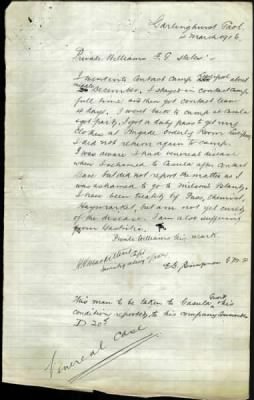 Darlinghurst Gaol.
March 1916.
Private Williams E. G. states:-
I went into contact camp about
middle December, I stayed in contact camp
full time and then got contact leave
days. I went back to camp at Casula
I got a duty pass to get my
clothes at Brigade orderly Room
I did not return again to camp.
I was aware I had venereal disease
when I returned to Casula after contact
leave but did not report the matter as I
was ashamed to go to Milsons Island.
I have been treated by Chemist,
Haymarket, but am not yet cured
of the disease. I am also suffering
from Gastritis.
Private Williams his mark.
Investigating Officer
Simpson G.M.P.
This man to be taken to Casula, his
condition reported to his company Commander
D 20th
Venereal Case